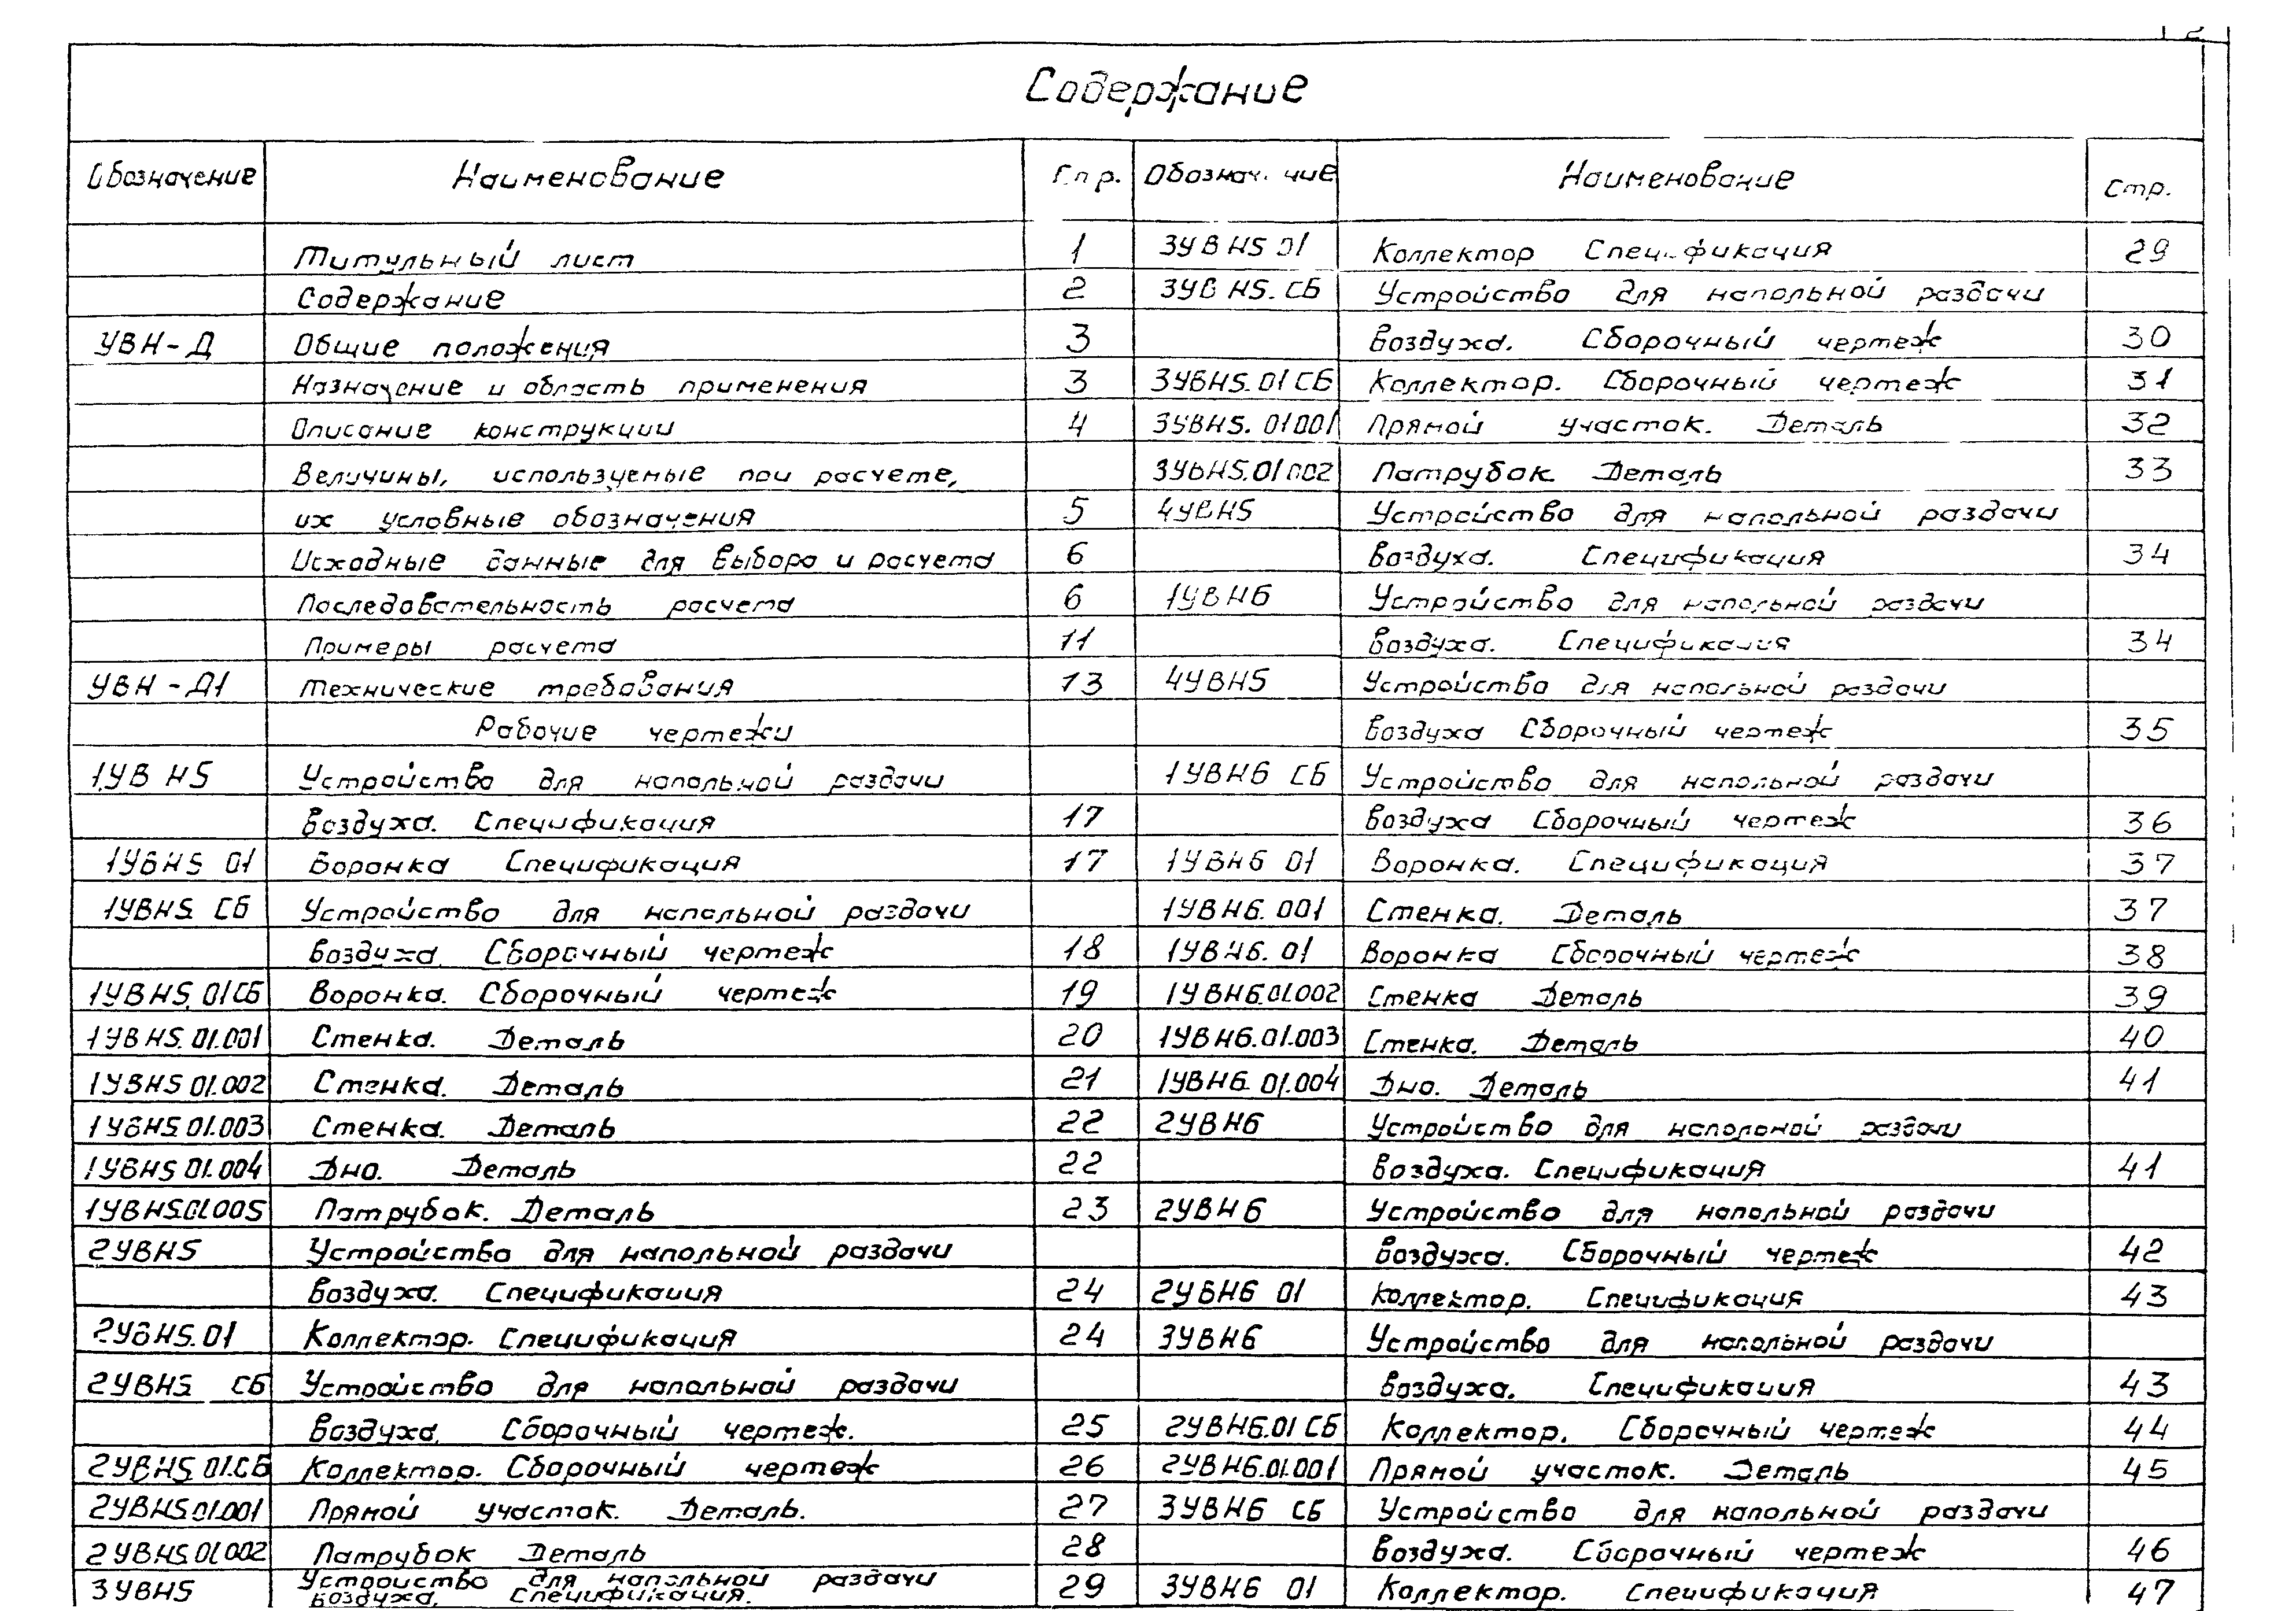 2
Содержание
Обозначение Наименование Стр. Обозначение Наименование Стр.
Титульный лист 1
Содержание 2
УВН-Д Общие положения 3
Назначение и область применения 3
Описание конструкции 4
Величины, используемые при расчете,
их условные обозначения 5
Исходные данные для выбора и расчета 6
Последовательность расчета 6
Примеры расчета 11
УВН-Д1 Технические требования 13
Рабочие чертежи
1УВН5 Устройство для напольной раздачи
воздуха. Спецификация 17
1УВН5 01 Воронка Спецификация 17
1УВН5 СБ Устройство для напольной раздачи
воздуха. Сборочный чертеж 18
1УВН5.01СБ Воронка. Сборочный чертеж 19
1УВН5.01.001 Стенка. Деталь 20
1УВН5 01.002 Стенка. Деталь 21
1УВН5.01.003 Стенка. Деталь 22
1УВН5 01.004 Дно. Деталь 22
1УВН5.01.005 Патрубок. Деталь 23
2УВН5 Устройство для напольной раздачи
воздуха. Спецификация 24
2УВН5.01 Коллектор. Спецификация 24
2УВН5 СБ Устройство для напольной раздачи
воздуха. Сборочный чертеж. 25
2УВН5 01.СБ Коллектор. Сборочный чертеж 26
2УВН5.01.001 Прямой участок. Деталь. 27
2УВН5.01.002 Патрубок Деталь 28
3УВН5 Устройство для напольной раздачи
воздуха. Спецификация. 29
3УВН5 01 Коллектор Спецификация 29
3УВН5.СБ Устройство для напольной раздачи
воздуха. Сборочный чертеж 30
3УВН5.01СБ Коллектор. Сборочный чертеж 31
3УВН5.01001 Прямой участок. Деталь 32
3УВН5.01.002 Патрубок Деталь 33
4УВН5 Устройство для напольной раздачи
воздуха. Спецификация 34
1УВН6 Устройство для напольной раздачи
воздуха. Спецификация 34
4УВН5 Устройство для напольной раздачи
воздуха Сборочный чертеж 35
1УВН6 СБ Устройство для напольной раздачи
воздуха Сборочный чертеж 36
1УВН6 01 Воронка. Спецификация 37
1УВН6.001 Стенка. Деталь 37
1УВН6.01 Воронка Сборочный чертеж 38
1УВН6.01.002 Стенка Деталь 39
1УВН6.01.003 Стенка. Деталь 40
1УВН6.01.004 Дно. Деталь 41
2УВН6 Устройство для напольной раздачи
воздуха. Спецификация 41
2УВН6 Устройство для напольной раздачи
воздуха. Сборочный чертеж 42
2УВН6 01 Коллектор. Спецификация 43
3УВН6 Устройство для напольной раздачи
воздуха. Спецификация 43
2УВН6.01 СБ Коллектор. Сборочный чертеж 44
2УВН6.01.001 Прямой участок. Деталь 45
3УВН6 СБ Устройство для напольной раздачи
воздуха. Сборочный чертеж 46
3УВН6 01 Коллектор. Спецификация 47